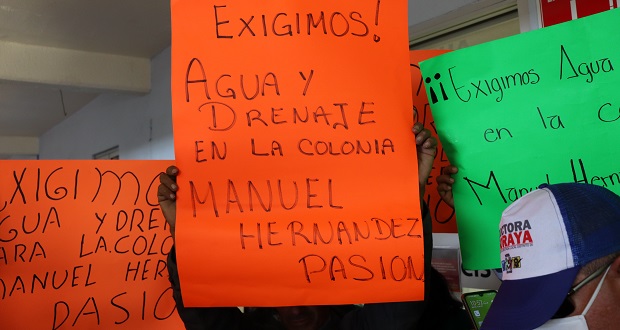 EXIGIMOS!
AGUA Y
DRENAJE
EN LA COLONIA
MANUEL
HERNANDEZ
PASION
EXIGIMO
AGUA Y DRE
ARA LA.COLO
MANUEL HER
PASION
¡¡Exigimos Agua
en la c
Manuel Hern
RAYA